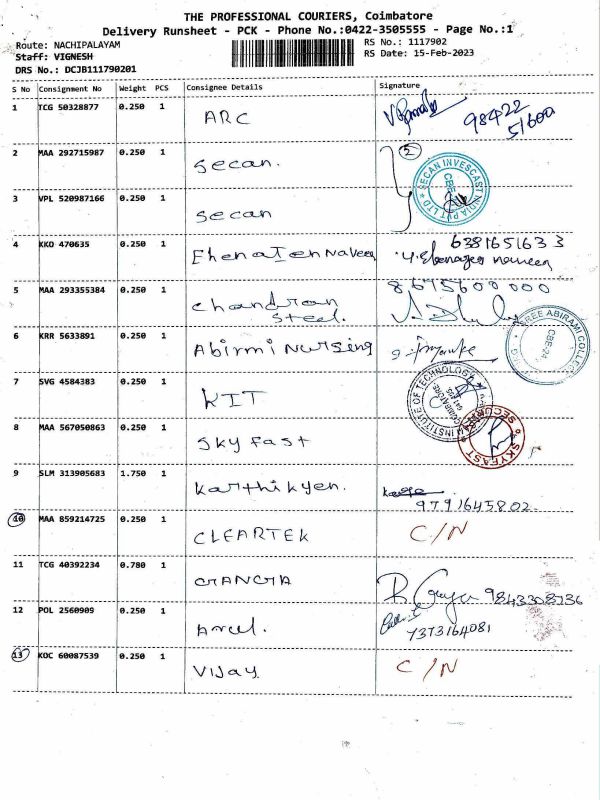 THE PROFESSIONAL COURIERS, Coimbatore
Delivery Runsheet - PCK - Phone No.:0422-3505555 - Page No.:1
Route: NACHIPALAYAM
RS No.: 1117902
Staff: VIGNESH
RS Date: 15-Feb-2023
DRS No.: DCJB111790201
S No Consignment No Weight PCS Consignee Details Signature
1 TCG 50328877 0.250 1 ARC 98422
51600
2 MAA 292715987 0.250 1 Secan. 2
SECAN INVESCAST INDIA PVT LTD
CBE
3 VPL 520987166 0.250 1 Secan
4 KKO 470635 0.250 1 EhenaIenNaveen 6381651633
5 MAA 293355384 0.250 1 Chandran Steel. 8695600000
6 KRR 5633891 0.250 1 Abirmi Nursing
SREE ABIRAMI COLLEGE
CBE-24
7 SVG 4584383 0.250 1 KIT
INSTITUTE OF TECHNOLOGY
COIMBATORE
8 MAA 567050863 0.250 1 Sky Fast
SECURITY SKYFAST
9 SLM 313905683 1.750 1 Karthikyen. 9791645802.
10 MAA 859214725 0.250 1 CLEARTEK C/N
11 TCG 40392234 0.780 1 GANGA 9843308936
12 POL 2560909 0.250 1 Arul. 7373164081
13 KOC 60087539 0.250 1 Vijay C/N